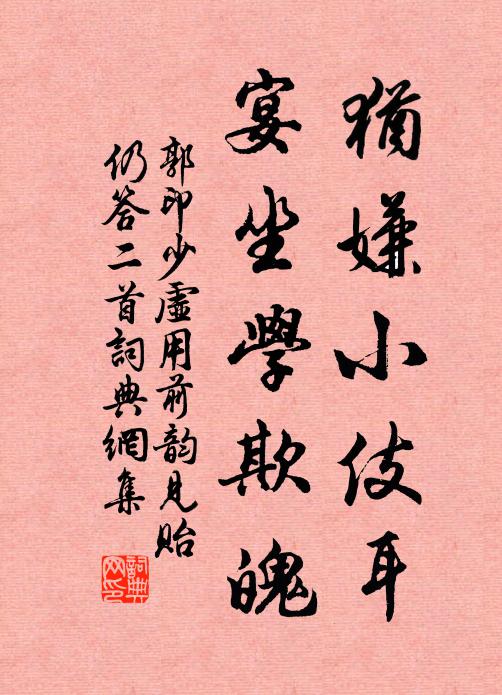 猶嫌小伎耳
宴坐學欺魄
郭印少虛用前韵見貽
仍答二首詞典網集
詞典
网印